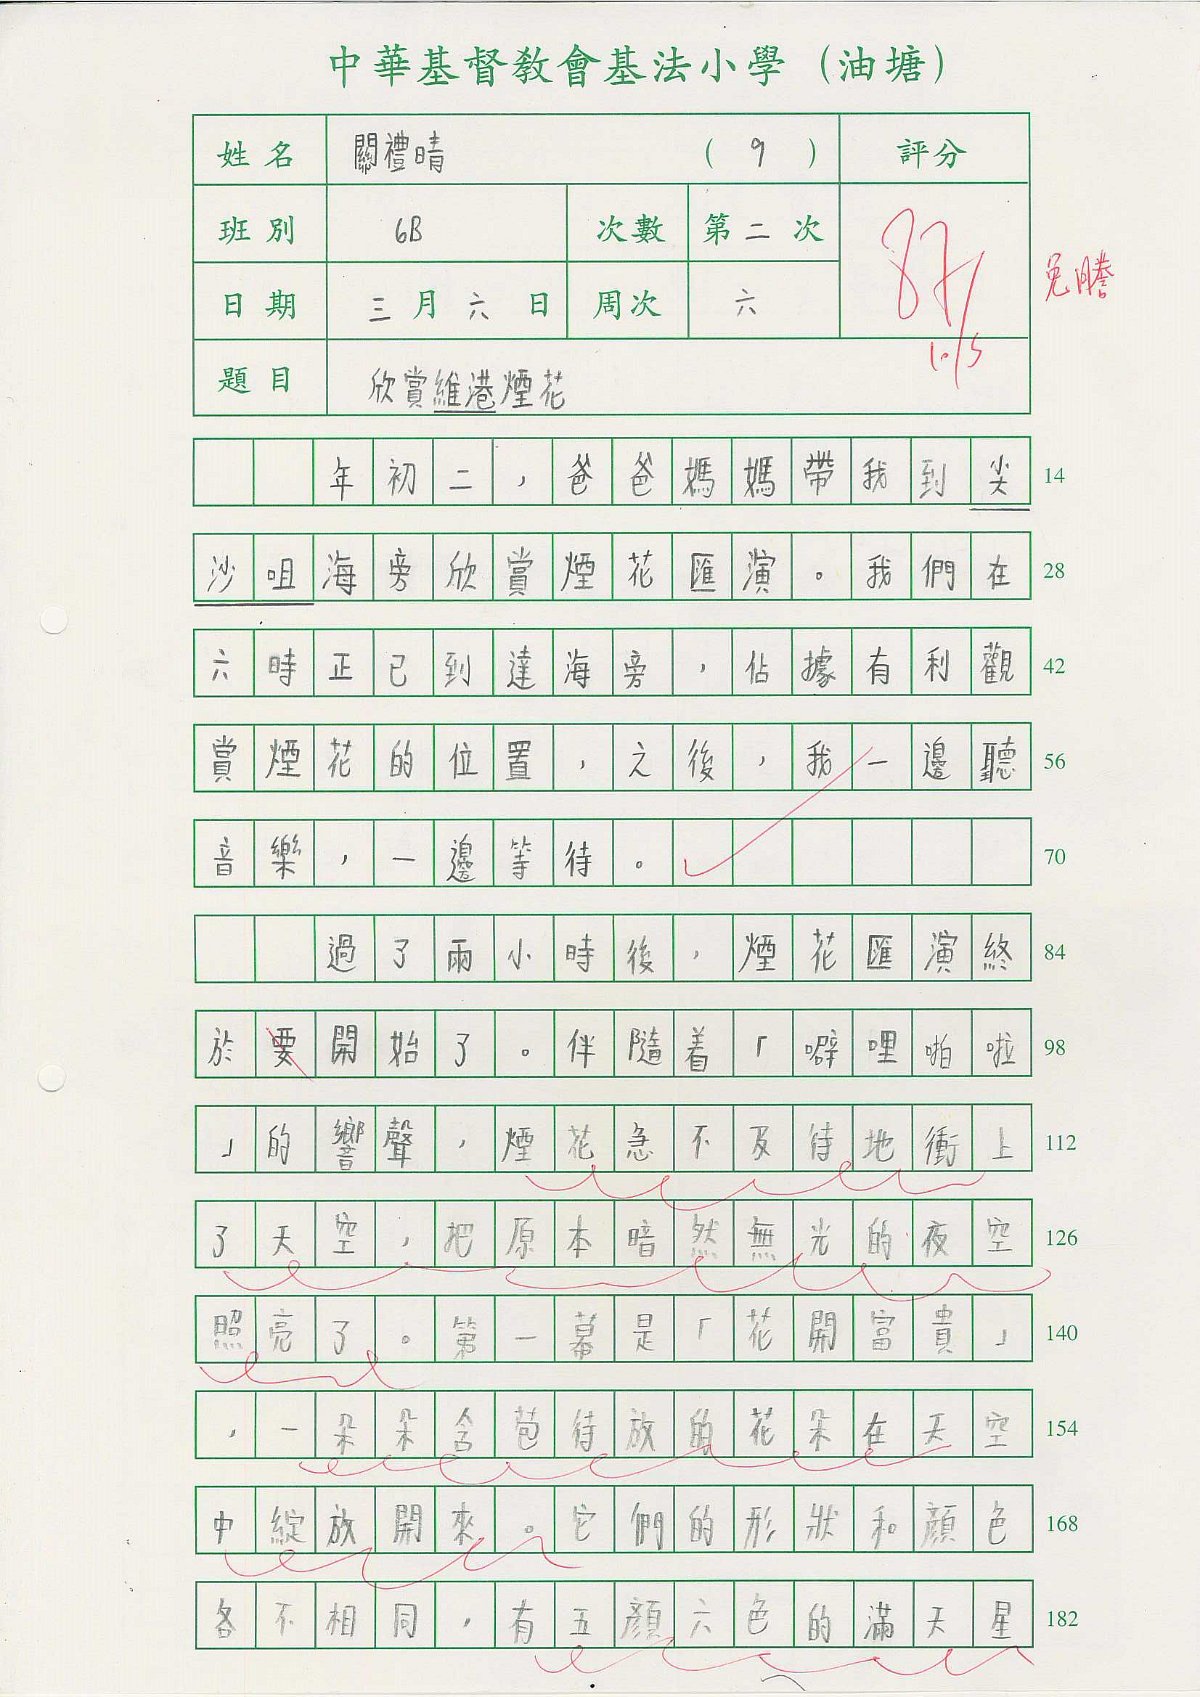 中華基督教會基法小學（油塘）
姓名 關禮晴 （9） 評分
班別 6B 次數 第二次 87
免謄
日期 三月六日 周次 六
10/5
題目 欣賞維港煙花
年初二，爸爸媽媽帶我到尖 14
沙咀海旁欣賞煙花匯演。我們在 28
六時正已到達海旁，佔據有利觀 42
賞煙花的位置，之後，我一邊聽 56
音樂，一邊等待。 70
過了兩小時後，煙花匯演終 84
於要開始了。伴隨着「噼哩啪啦 98
」的響聲，煙花急不及待地衝上 112
了天空，把原本暗然無光的夜空 126
照亮了。第一幕是「花開富貴」 140
，一朵朵含苞待放的花朵在天空 154
中綻放開來。它們的形狀和顏色 168
各不相同，有五顏六色的滿天星 182